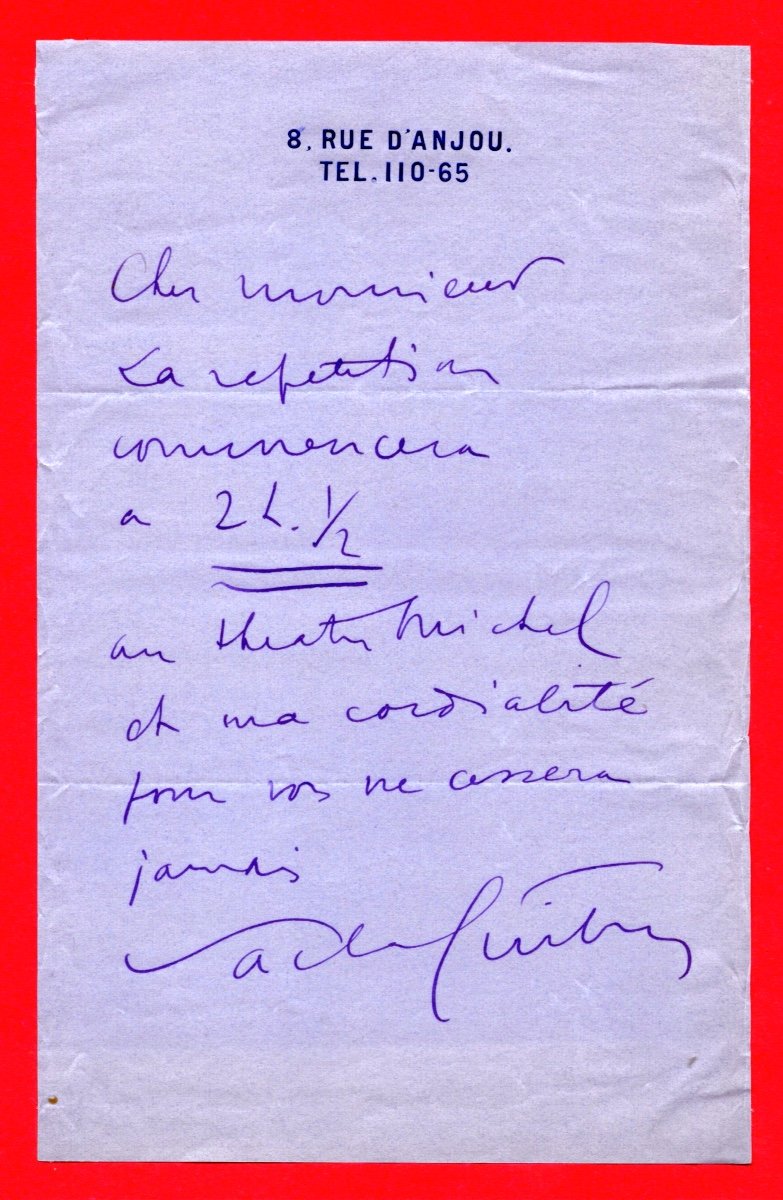 8, RUE D'ANJOU.
TEL. 110-65
Cher monsieur
La repetition
commencera
a 2 h. 1/2
au theatre Michel
et ma cordialité
pour vous ne cessera
jamais
Sacha Guitry